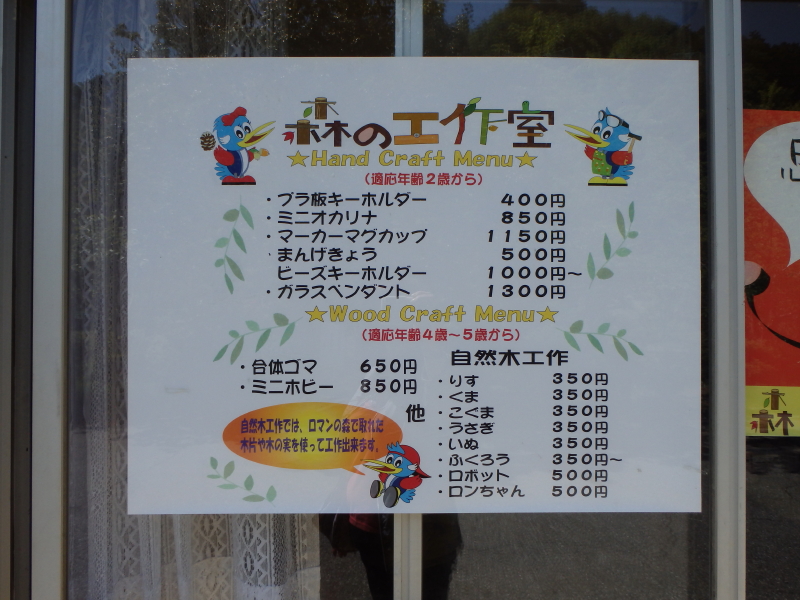 森の工作室
★Hand Craft Menu★
(適応年齢2歳から)
・プラ板キーホルダー 400円
・ミニオカリナ 850円
・マーカーマグカップ 1150円
・まんげきょう 500円
ビーズキーホルダー 1000円~
・ガラスペンダント 1300円
★Wood Craft Menu★
(適応年齢4歳~5歳から)
・合体ゴマ 650円
・ミニホビー 850円
他
自然木工作
・りす 350円
・くま 350円
・こぐま 350円
・うさぎ 350円
・いぬ 350円
・ふくろう 350円~
・ロボット 500円
・ロンちゃん 500円
自然木工作では、ロマンの森で取れた
木片や木の実を使って工作出来ます。
森